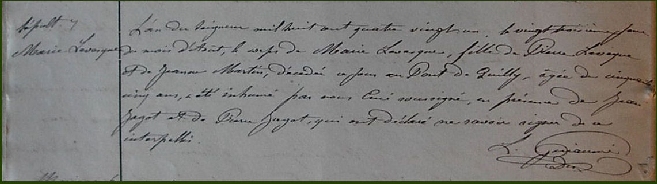 Sépult. 
Marie Levesque
L'an du Seigneur mil huit cent quatre vingt un, le vingt troisième jour
du mois d'Août, le corps de Marie Levesque, fille de Pierre Levesque
et de Jeanne Martin, décédée ce jour au Pont de Guilly, âgée de cinquante
cinq ans, a été inhumé par nous Curé soussigné, en présence de Jean
Jagot et de Pierre Jagot qui ont déclaré ne savoir signer de ce
interpellés.